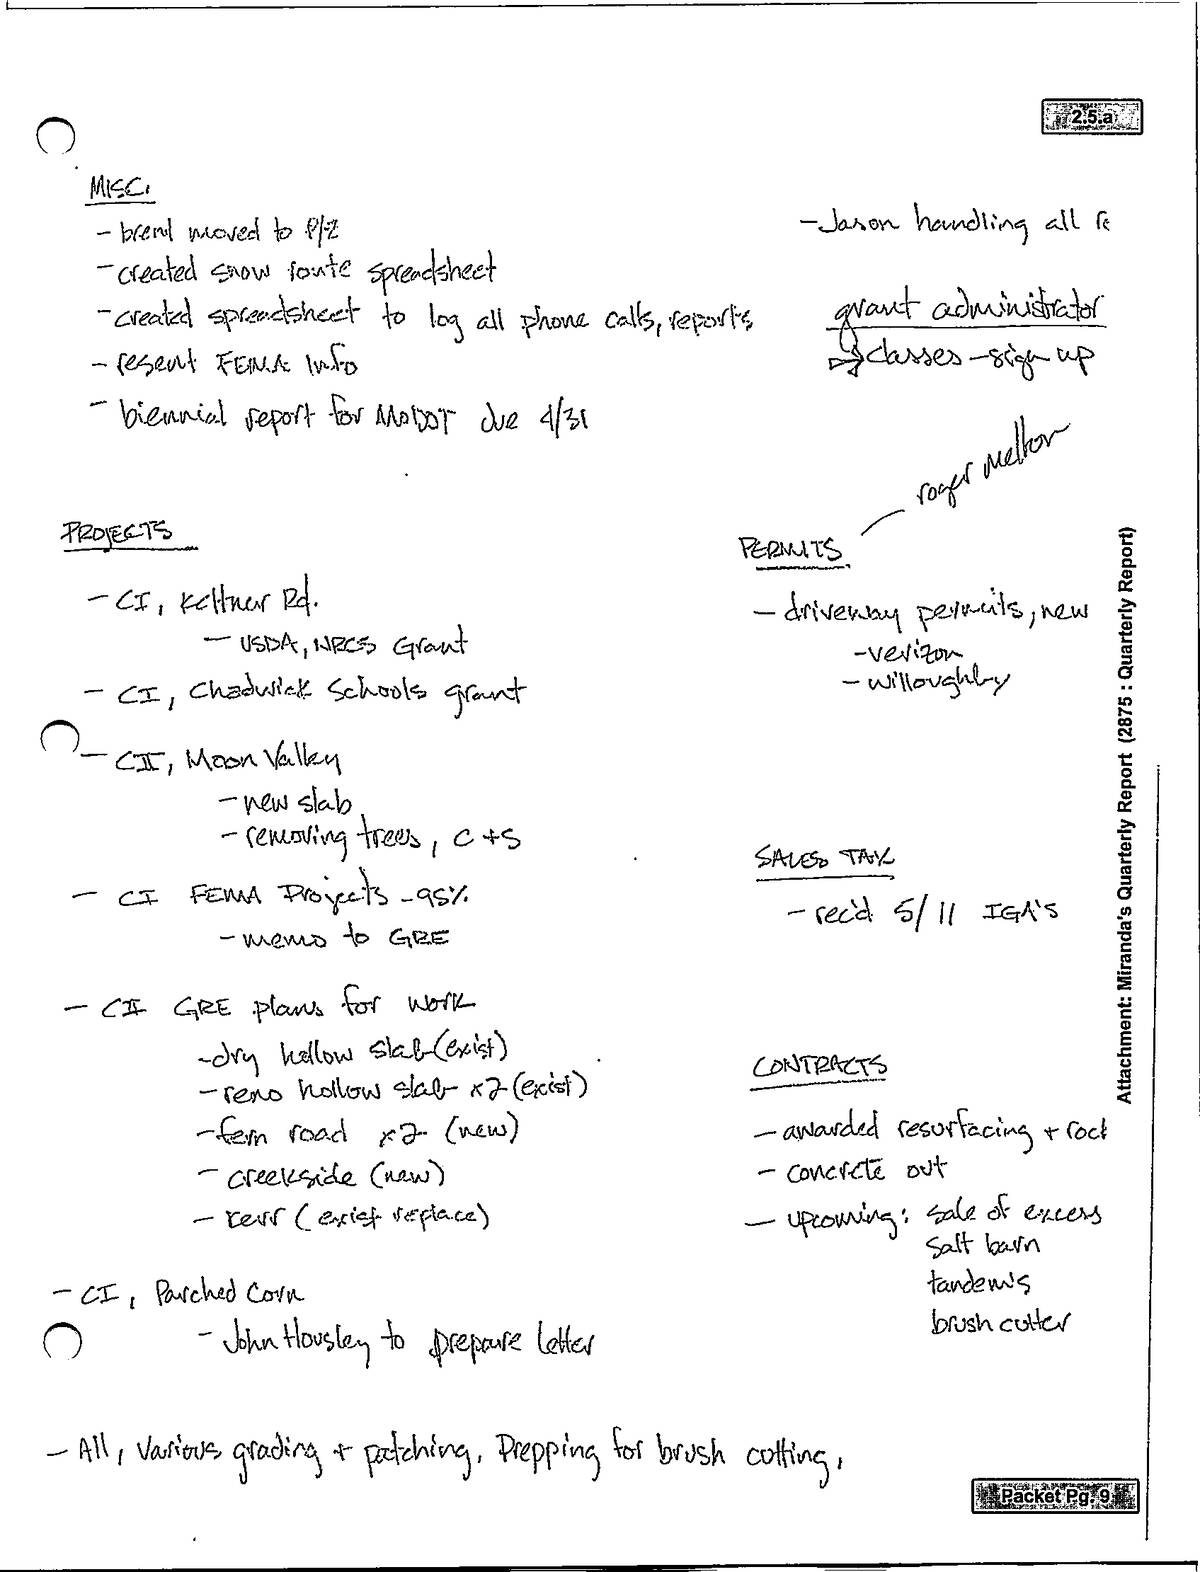 2.5.a
MISC.
- brent moved to P/Z
- created snow route spreadsheet
- created spreadsheet to log all phone calls, reports
- resent FEMA Info
- biennial report for MoDOT due 4/31
- Jason handling all
grant administrator
classes - sign up
PROJECTS
- CI, Keltner Rd.
- USDA, NRCS Grant
- CI, Chadwick Schools grant
- CII, Moon Valley
- new slab
- removing trees, C+S
- CI FEMA Projects - 95%
- memo to GRE
- CII GRE plans for work
- dry hollow slab (exist)
- reno hollow slab x2 (exist)
- fern road x2 (new)
- creekside (new)
- kerr (exist replace)
- CI, Parched Corn
- John Housley to prepare letter
- All, Various grading + patching. Prepping for brush cutting.
roger Melton
PERMITS
- driveway permits, new
- verizon
- willoughby
SALES TAX
- rec'd 5/11 IGA's
CONTRACTS
- awarded resurfacing + rock
- concrete out
- upcoming: sale of excess
salt barn
tandem's
brush cutter
Attachment: Miranda's Quarterly Report (2875 : Quarterly Report)
Packet Pg. 9